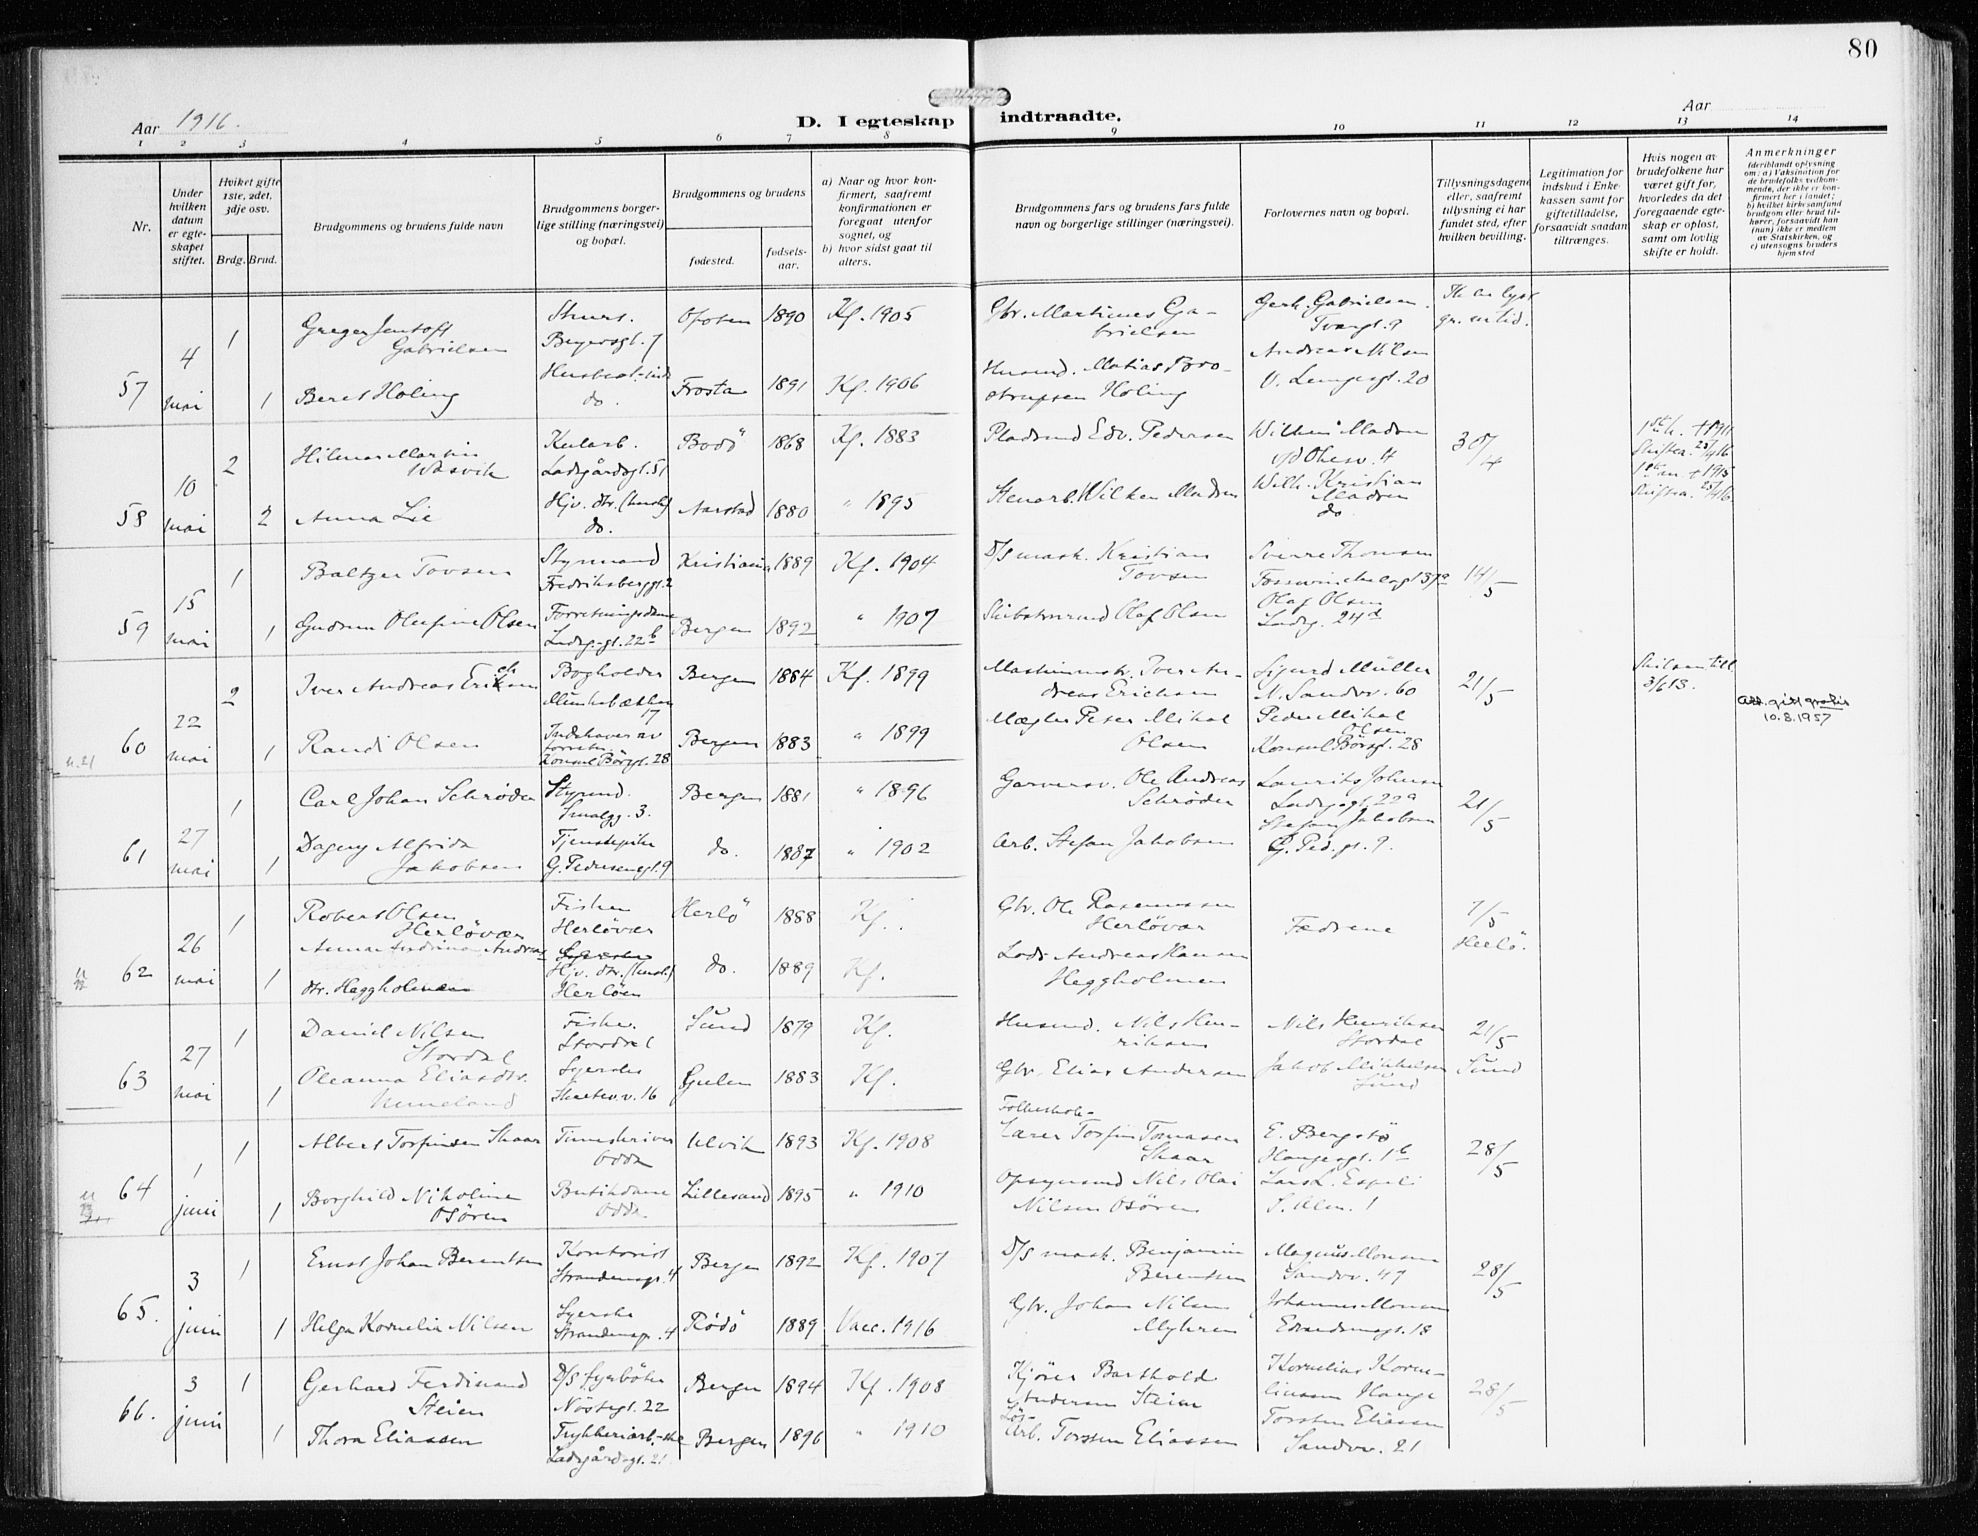 80
Aar 1916.
D. I egteskap indtraadte.
Aar
1 2 3 4 5 6 7 8 9 10 11 12 13 14
Nr.
Under hvilken datum er egteskapet stiftet.
Hvilket gifte 1ste, 2det, 3dje osv.
Brdg. Brud.
Brudgommens og brudens fulde navn
Brudgommens borgerlige stilling (næringsvei) og bopæl.
Brudgommens og brudens
fødested.
fødselsaar.
a) Naar og hvor konfirmert, saafremt konfirmationen er foregaat utenfor sognet, og
b) hvor sidst gaat til alters.
Brudgommens fars og brudens fars fulde navn og borgerlige stillinger (næringsvei).
Forlovernes navn og bopæl.
Tillysningsdagene eller, saafremt tillysning ei har fundet sted, efter hvilken bevilling.
Legitimation for indskud i Enkekassen samt for giftetilladelse, forsaavidt saadan tiltrænges.
Hvis nogen av brudefolkene har været gift før, hvorledes da det foregaaende egteskap er opløst, samt om lovlig skifte er holdt.
Anmerkninger
(deriblandt oplysning om: a) Vaksination for de brudefolks vedkommende, der ikke er konfirmert her i landet; b) hvilket kirkesamfund brudgom eller brud tilhører, forsaavidt han (hun) ikke er medlem av Statskirken, og c) utensogns bruders hjemsted
57 4 mai
1 Greger Jentoft Gabrielsen Ofoten 1890 Kf. 1905 Gbr. Martinus Gabrielsen Gerh. Gabrielsen.
1 Beret Holing do. Frosta 1891 Kf. 1906 Husmd. Holing Andreas Nilsen 20
58 10 mai
2 Hilmar Martin Kularb. Ladegårdsgt. 51 Bodö 1868 Kf. 1883 Pladsmd Edv. Pedersen Wilhem Madsen 30/4
2 Anna Lie Hjv. dtr. (hush) do. Aarstad 1880 " 1895 Stenarb. Wilken Madsen Wilh. Kristian Madsen do
59 15 mai
1 Baltzer Tovsen Styrmand Fredriksbergsgt. 2 Kristiania 1889 Kf. 1904 D/S mask. Kristian Tovsen Sverre Thomsen 14/5
1 Gudrun Olufine Olsen Forretningsdame Ladeg.gt. 22b Bergen 1892 " 1907 Olaf Olsen Olaf Olsen Ladeg. 24d
60 22 mai
2 Iver Andreas Eriksen Bogholder 17 Bergen 1884 Kf. 1899 Maskinmstr. Iver Andreas Erichsen Sigurd Müller N. Sandvv. 60 21/5 3/6 13.
1 Randi Olsen Indehaver av forretn. Konsul Börsgt. 28 Bergen 1883 " 1899 Mægler Peter Mikal Olsen Peder Mikal Olsen Konsul Börsgt. 28
Att. gitt gratis 10.8.1957
61 27 mai
1 Carl Johan Schrøder Styrmd. Smalgg. 3. Bergen 1881 " 1896 Garversv. Ole Andreas Schrøder Laurits Johnsen 22a 21/5
1 Dagny Alfrida Jakobsen Tjenestepike G. Pedersensgt. 9 do. 1887 " 1902 Arb. Stefan Jakobsen Stefan Jakobsen G. Ped. gt. 9.
62 26 mai
1 Robert Olsen Herløvær Fisker Herløvær Herlö 1888 Kf. Gbr. Ole Rasmussen Herløvær Fædrene 7/5 Herlö.
1 Anna Andrea Andreasdtr. Heggholmen Hjv. dtr. (hush) Herløen do. 1889 Kf. Lods Andreas Hansen Heggholmen
63 27 mai
1 Daniel Nilsen Stordal Fisker. Stordal Sund 1879 Kf. Husmd. Nils Henriksen Nils Henriksen Stordal 21/5
1 Oleanna Eliasdtr. Syerske 16 Gulen 1883 Kf. Gbr. Elias Andersen Jakob Mikkelsen Sund Sund
64 1 juni
1 Albert Torfinsen Skaar Timeskriver Odda Ulvik 1893 Kf. 1908 Folkeskolelærer Torfin Tomasen Skaar E. Bergstö Haugesgt. 1b 28/5
1 Borghild Nikoline Osören Butikdame Odda Lillesand 1895 " 1910 Opsynsmd Nils Olai Nilsen Osören Lars L. Espeli S. Alm. 1
65. 3 juni
1 Ernst Johan Berentsen Kontorist Strandensgt. 4 Bergen 1892 Kf. 1907 D/S mask. Benjamin Berentsen Magnus Monsen Sandvv. 47 28/5
1 Helga Kornelia Nilsen Syerske Strandensgt. 4 Rödö 1889 Vacc. 1916 Gbr. Johan Nilsen Myhren Johannes Monsen Edvardsensgt. 18
66. 3 juni
1 Gerhard Ferdinand Steien D/S fyrböter Nöstegt. 22 Bergen 1894 Kf. 1908 Kjörer Barthold Andersen Steien Kornelius Korneliussen Hauge 28/5
1 Thora Eliassen Trykkeriarb.-ske Ladegårdsgt. 21 Bergen 1896 " 1910 Løsarb. Torsten Eliassen Torsten Eliassen Sandvv. 21